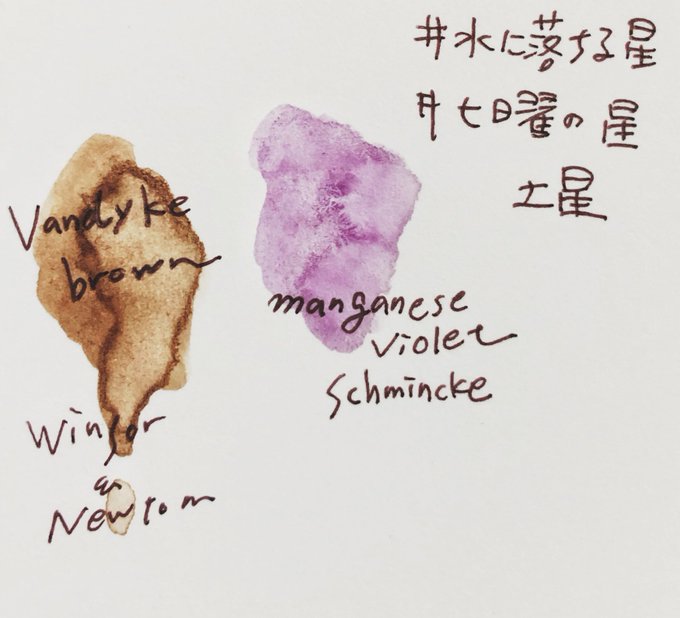 #水に落ちる星
#七曜の星
土星
Vandyke
brown
Winsor
&
Newton
manganese
violet
Schmincke